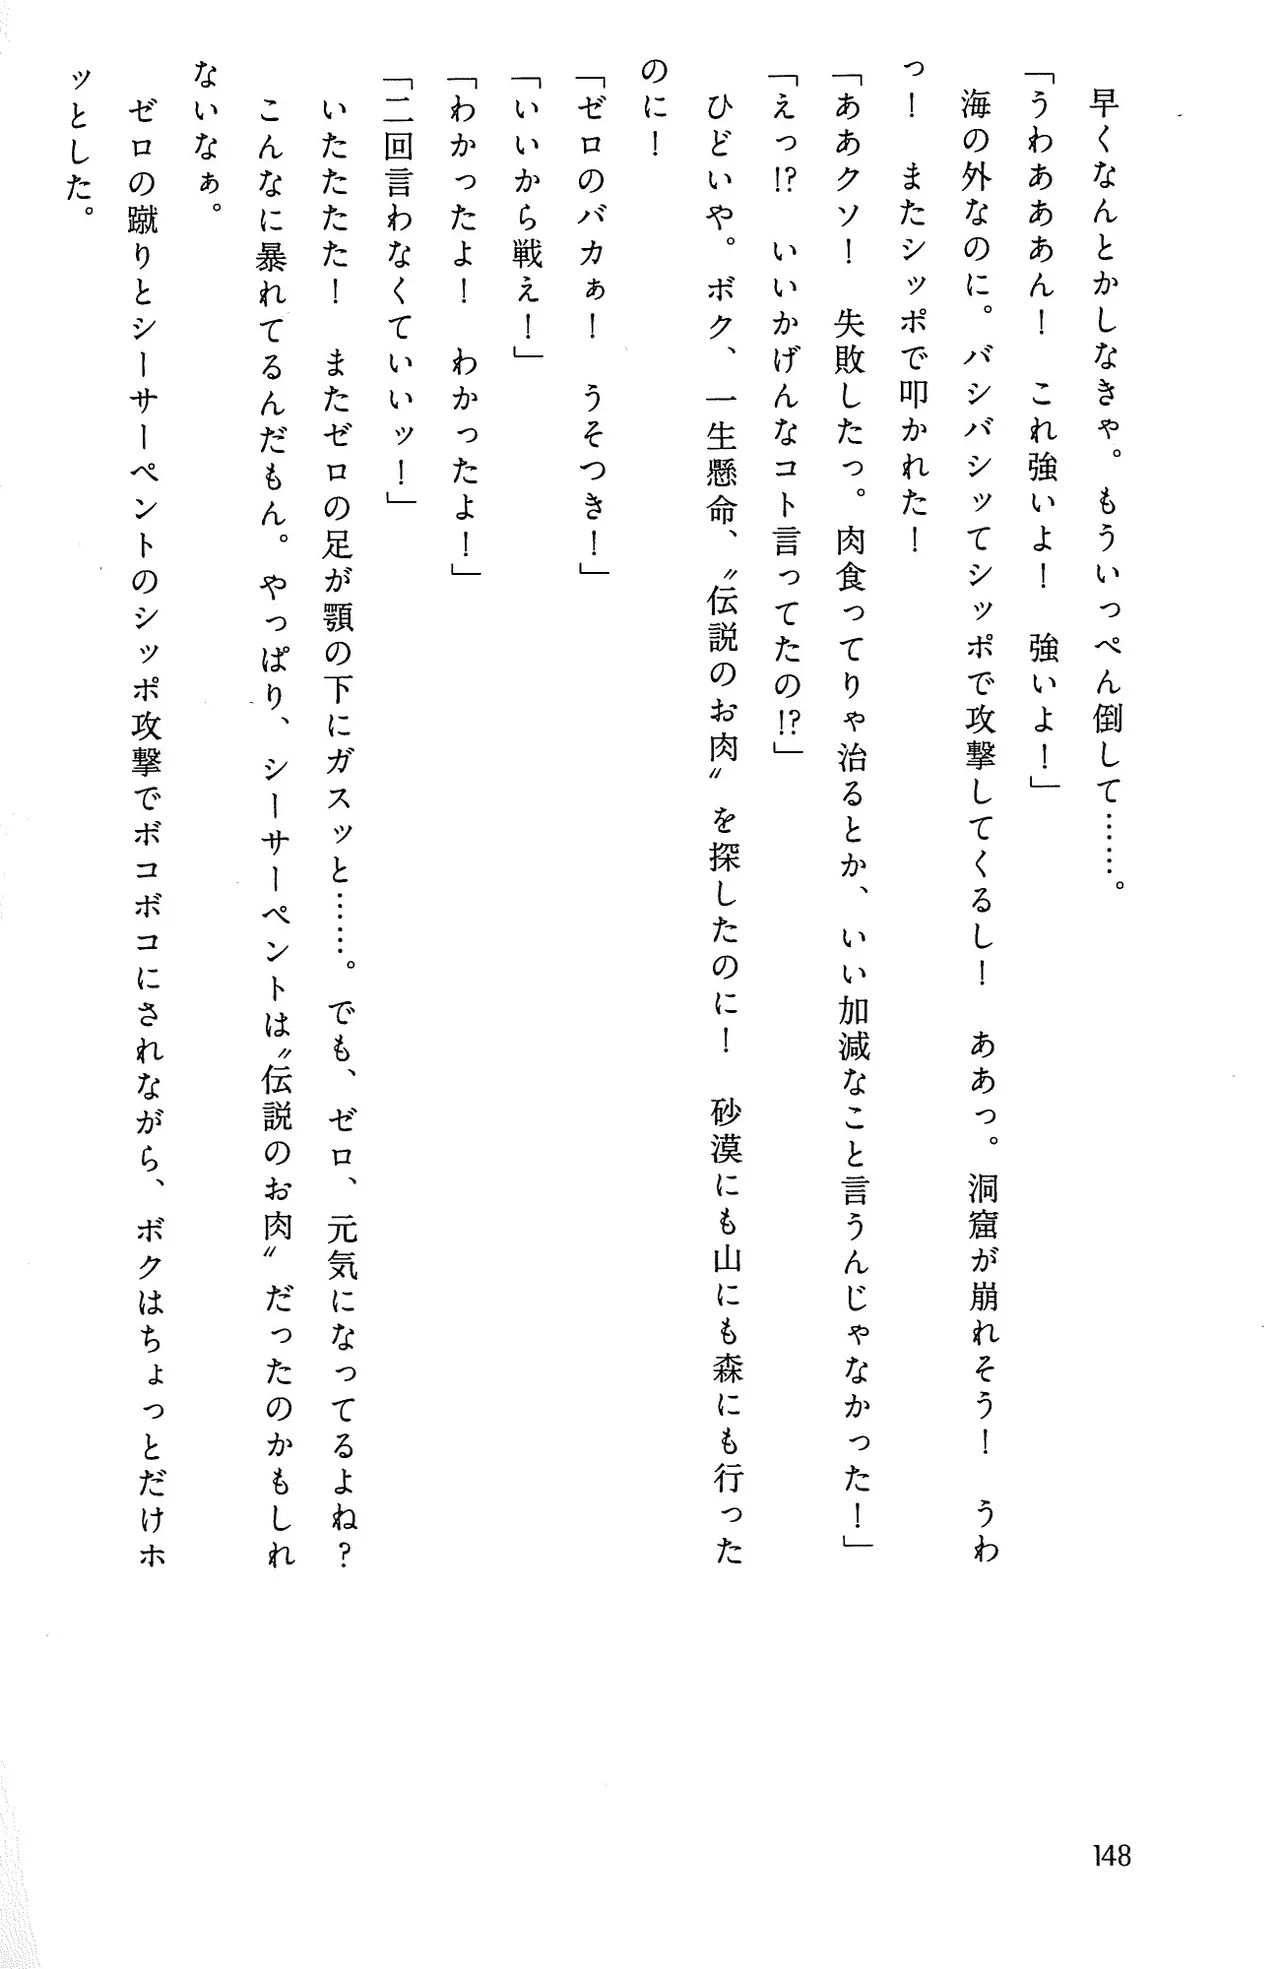 早くなんとかしなきゃ。もういっぺん倒して……。
「うわあああん！　これ強いよ！　強いよ！」
　海の外なのに。バシバシッてシッポで攻撃してくるし！　ああっ。洞窟が崩れそう！　うわ
っ！　またシッポで叩かれた！
「ああクソ！　失敗したっ。肉食ってりゃ治るとか、いい加減なこと言うんじゃなかった！」
「えっ!?　いいかげんなコト言ってたの!?」
　ひどいや。ボク、一生懸命、〝伝説のお肉〟を探したのに！　砂漠にも山にも森にも行った
のに！
「ゼロのバカぁ！　うそつき！」
「いいから戦え！」
「わかったよ！　わかったよ！」
「二回言わなくていいッ！」
　いたたたた！　またゼロの足が顎の下にガスッと……。でも、ゼロ、元気になってるよね？
　こんなに暴れてるんだもん。やっぱり、シーサーペントは〝伝説のお肉〟だったのかもしれ
ないなぁ。
　ゼロの蹴りとシーサーペントのシッポ攻撃でボコボコにされながら、ボクはちょっとだけホ
ッとした。
148